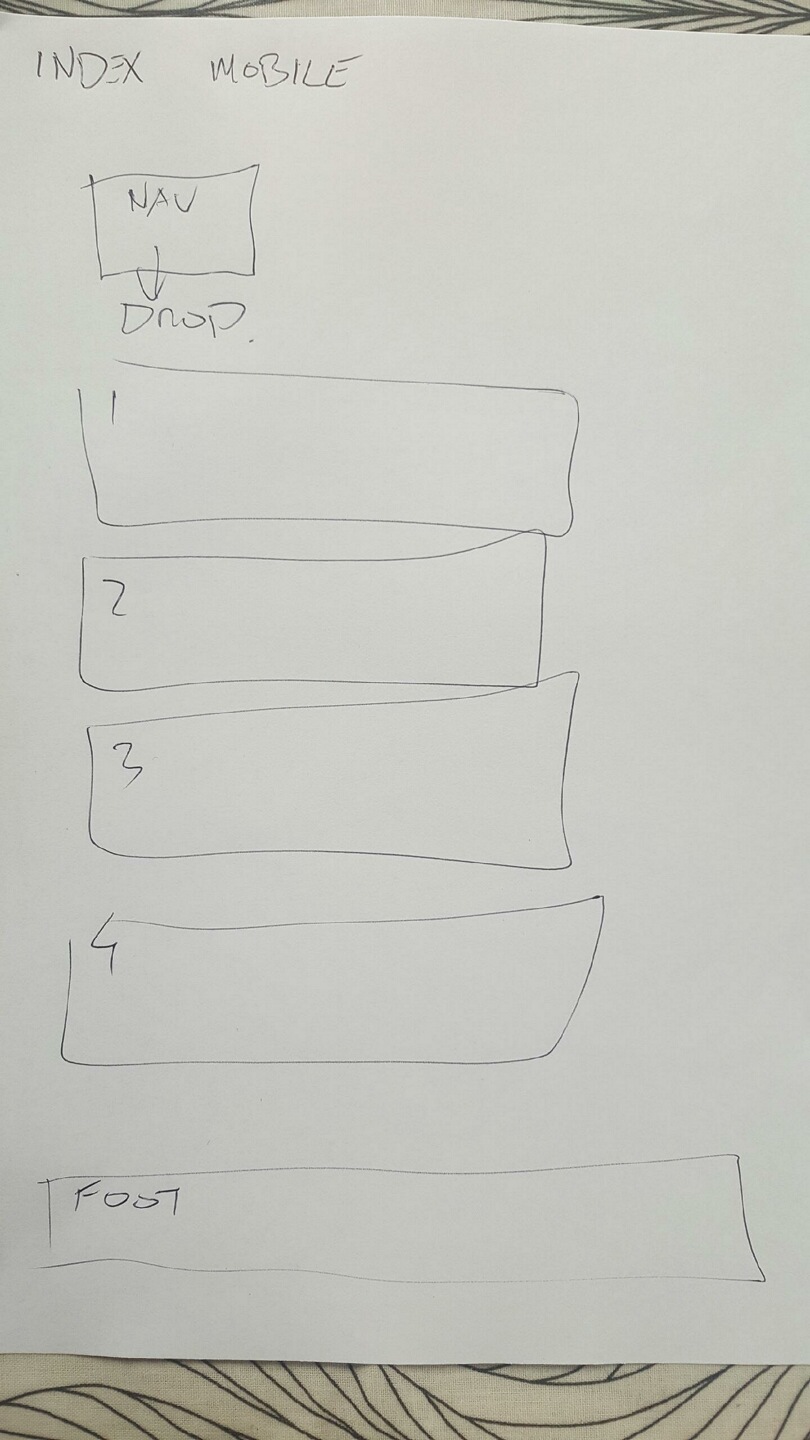 INDEX MOBILE
NAV
DROP.
1
2
3
4
FOOT